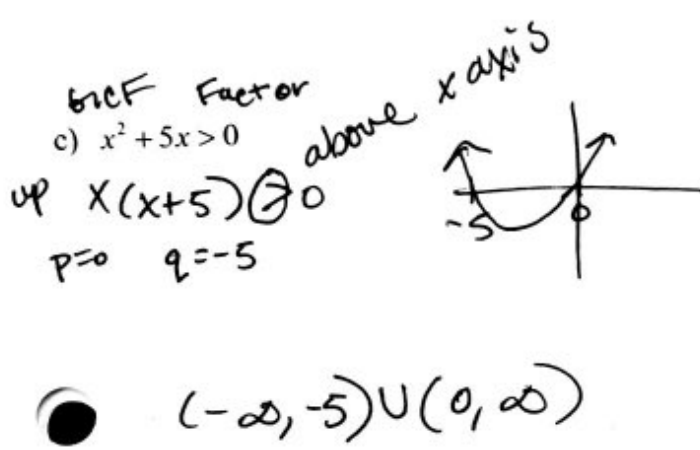 GCF Factor
c) x² + 5x > 0
above x axis
up x(x+5) > 0
p=0 q=-5
-5 0
(-∞, -5) ∪ (0, ∞)